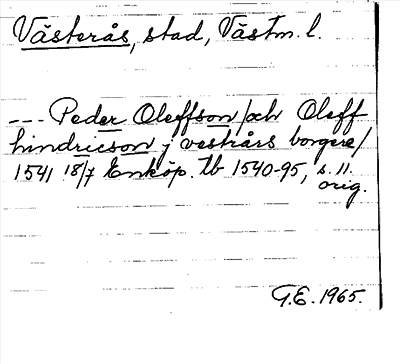 Västerås, stad, Västm. l.
--- Peder Oleffson /och Oleff
hindricson j vestrårs borgere/
1541 18/7 Enköp. tb 1540-95, s. 11.
orig.
G.E. 1965.